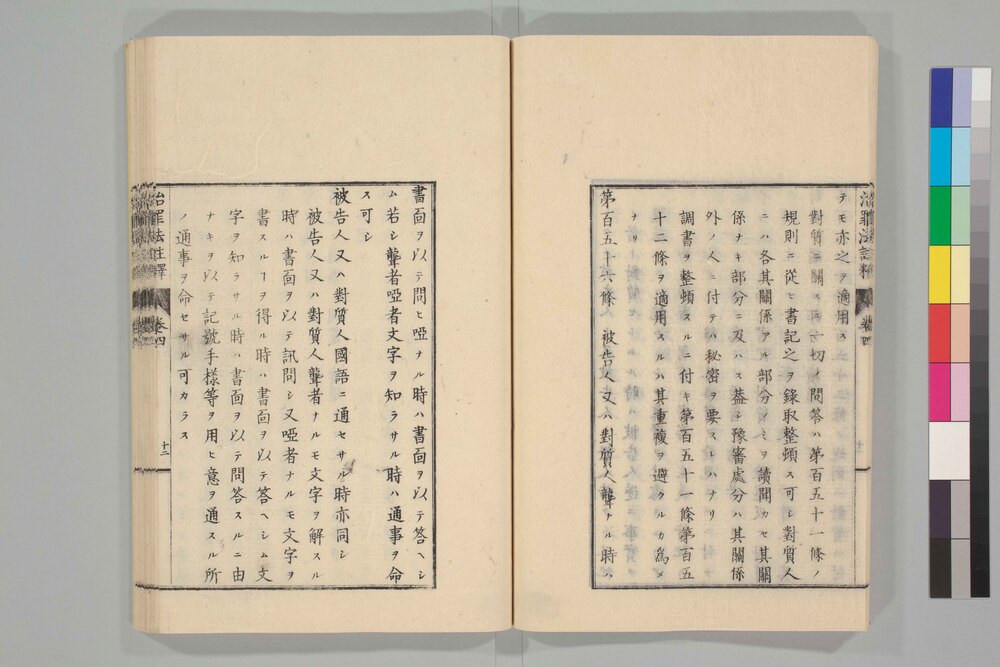 テモ亦之ヲ適用ス
對質ニ關スル一切ノ問答ハ第百五十一條ノ
規則ニ從ヒ書記之ヲ錄取整頓ス可シ對質人
ニハ各其關係アル部分ノミヲ讀聞カセ其關
係ナキ部分ニ及ハス蓋シ豫審處分ハ其關係
外ノ人ニ付テハ秘密ヲ要スレハナリ
調書ヲ整頓スルニ付キ第百五十一條第百五
十二條ヲ適用スルハ其重複ヲ避クルカ為メ
ナリ
第百五十六條 被告人又ハ對質人聾ナル時ハ
書面ヲ以テ問ヒ啞ナル時ハ書面ヲ以テ答ヘシ
ム若シ聾者啞者文字ヲ知ラサル時ハ通事ヲ命
ス可シ
被告人又ハ對質人國語ニ通セサル時亦同シ
被告人又ハ對質人聾者ナルモ文字ヲ解スル
時ハ書面ヲ以テ訊問シ又啞者ナルモ文字ヲ
書スルヿヲ得ル時ハ書面ヲ以テ答ヘシム文
字ヲ知ラサル時ハ書面ヲ以テ問答スルニ由
ナキヲ以テ記號手樣等ヲ用ヒ意ヲ通スル所
ノ通事ヲ命セサル可カラス
治罪法註釋
卷四
十二